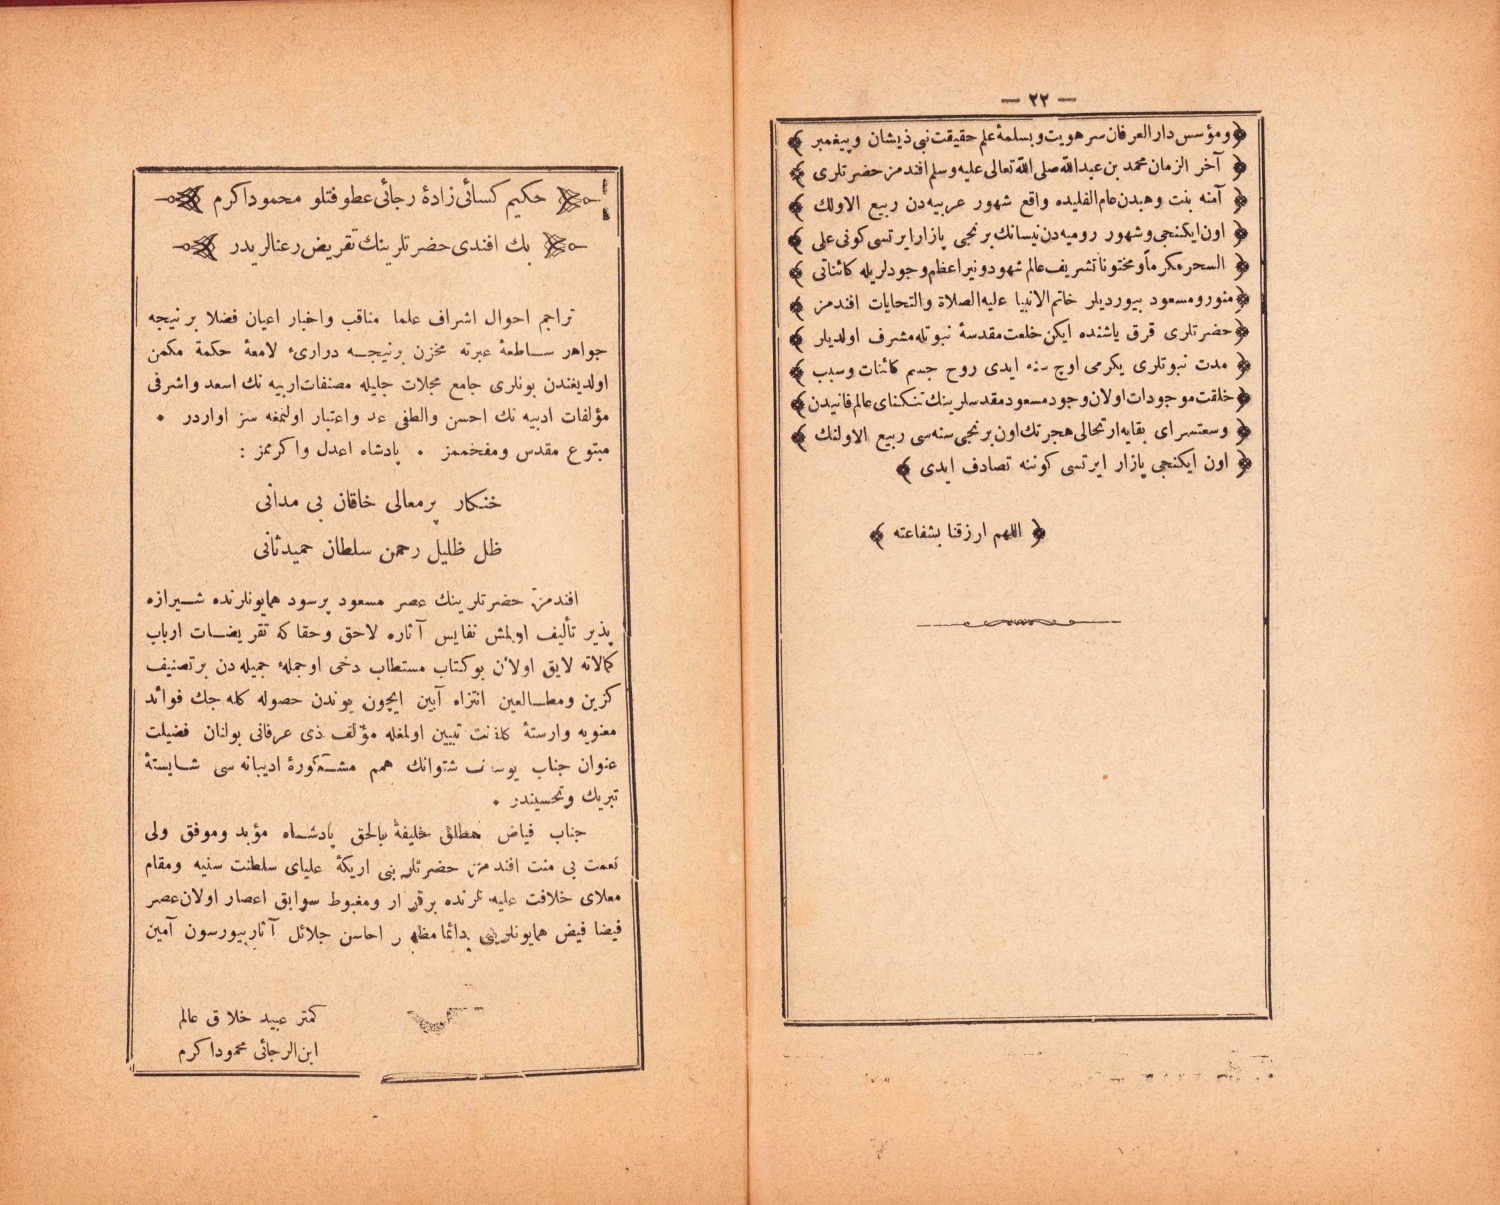 — ٢٢ —
﴿ ومؤسس دار العرفان سر هويت و بسلمهٔ علم حقيقت نبى ذيشان و پيغمبر ﴾
﴿ آخر الزمان محمد بن عبدالله صلى الله تعالى عليه وسلم افندمز حضرتلرى ﴾
﴿ آمنه بنت وهبدن عام الفليده واقع شهور عربيه دن ربيع الاولك ﴾
﴿ اون ايكنجى و شهور روميه دن نيسانك برنجى پازار ايرتسى كونى على ﴾
﴿ السحر مكرماً و مختوناً تشريف عالم شهود و نير اعظم وجودلريله كائناتى ﴾
﴿ منور و مسعود بيورديلر خاتم الانبيا عليه الصلاة والتحايات افندمز ﴾
﴿ حضرتلرى قرق ياشنده ايكن خلعت مقدسهٔ نبوتله مشرف اولديلر ﴾
﴿ مدت نبوتلرى يكرمى اوچ سنه ايدى روح جسم كائنات و سبب ﴾
﴿ خلقت موجودات اولان وجود مسعود مقدسلرينك تنكناى عالم فانيدن ﴾
﴿ وسعتسراى بقايه ارتحالى هجرتك اون برنجى سنه سى ربيع الاولنك ﴾
﴿ اون ايكنجى پازار ايرتسى كوننه تصادف ايدى ﴾
﴿ اللهم ارزقنا بشفاعته ﴾
حكيم كسائى زادهٔ رجائى عطوفتلو محمود اكرم
بك افندى حضرتلرينك تقريض رعنالريدر
تراجم احوال اشراف علما مناقب واخبار اعيان فضلا بر نيجه
جواهر ساطعهٔ عبرته مخزن برنيجه درارئ لامعهٔ حكمة مكمن
اولديغندن بونلرى جامع مجلات جليله مصنفات اربيه نك اسعد واشرفى
مؤلفات ادبيه نك احسن والطفى عد واعتبار اولنمغه سز اواردر .
متبوع مقدس ومفخممز . پادشاه اعدل واكرممز :
خنكار پرمعالى خاقان بى مدانى
ظل ظليل رحمن سلطان حميد ثانى
افندمز حضرتلرينك عصر مسعود پرسود همايونلرنده شيرازه
پذير تأليف اولمش نفايس آثاره لاحق وحقا كه تقريضات ارباب
كمالاته لايق اولان بوكتاب مستطاب دخى اوجملهٔ جميله دن بر تصنيف
كزين ومطالعين انتزاه آيين ايچون بوندن حصوله كله جك فوائد
معنويه وارستهٔ كلفت تبيين اولمغله مؤلف ذى عرفانى بولنان فضيلت
عنوان جناب همم مشكورهٔ اديبانه سى شايستهٔ
تبريك وتحسيندر .
جناب فياض مطلق خليفهٔ بالحق پادشاه مؤيد وموفق ولى
نعمت بى منت افندمز حضرتلرينى اريكهٔ علياى سلطنت سنيه ومقام
معلاى خلافت عليه لرنده برقرار ومغبوط سوابق اعصار اولان عصر
فيضا فيض همايونلرينى دائما مظهر احاسن جلائل آثار بيورسون آمين
كمتر عبيد خلاق عالم
ابن الرجائى محمود اكرم